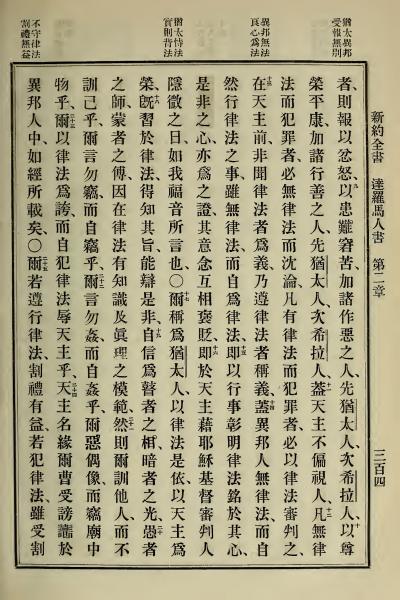 新約全書 達羅馬人書 第二章 三百四
猶太異邦
受報無別
異邦無法
良心爲法
猶太恃法
實則背法
不守律法
割禮無益
者、則報以忿怒、九以患難窘苦、加諸作惡之人、先猶太人、次希拉人、十以尊
榮平康、加諸行善之人、先猶太人、次希拉人、十一蓋天主不偏視人、十二凡無律
法而犯罪者、必無律法而沈淪、凡有律法而犯罪者、必以律法審判之、
十三在天主前、非聞律法者爲義、乃遵律法者稱義、十四蓋異邦人無律法、而自
然行律法之事、雖無律法、而自爲律法、十五卽以行事彰明律法銘於其心、
是非之心、亦爲之證、其意念互相褒貶、十六卽於天主藉耶穌基督審判人
隱微之日、如我福音所言也、〇十七爾稱爲猶太人、以律法是依、以天主爲
榮、十八旣習於律法、得知其旨、能辯是非、十九自信爲瞽者之相、暗者之光、二十愚者
之師、蒙者之傅、因在律法有知識及眞理之模範、二十一然則爾訓他人、而不
訓己乎、爾言勿竊、而自竊乎、二十二爾言勿姦、而自姦乎、爾惡偶像、而竊廟中
物乎、二十三爾以律法爲誇、而自犯律法辱天主乎、二十四天主名緣爾曹受謗讟於
異邦人中、如經所載矣、〇二十五爾若遵行律法、割禮有益、若犯律法、雖受割